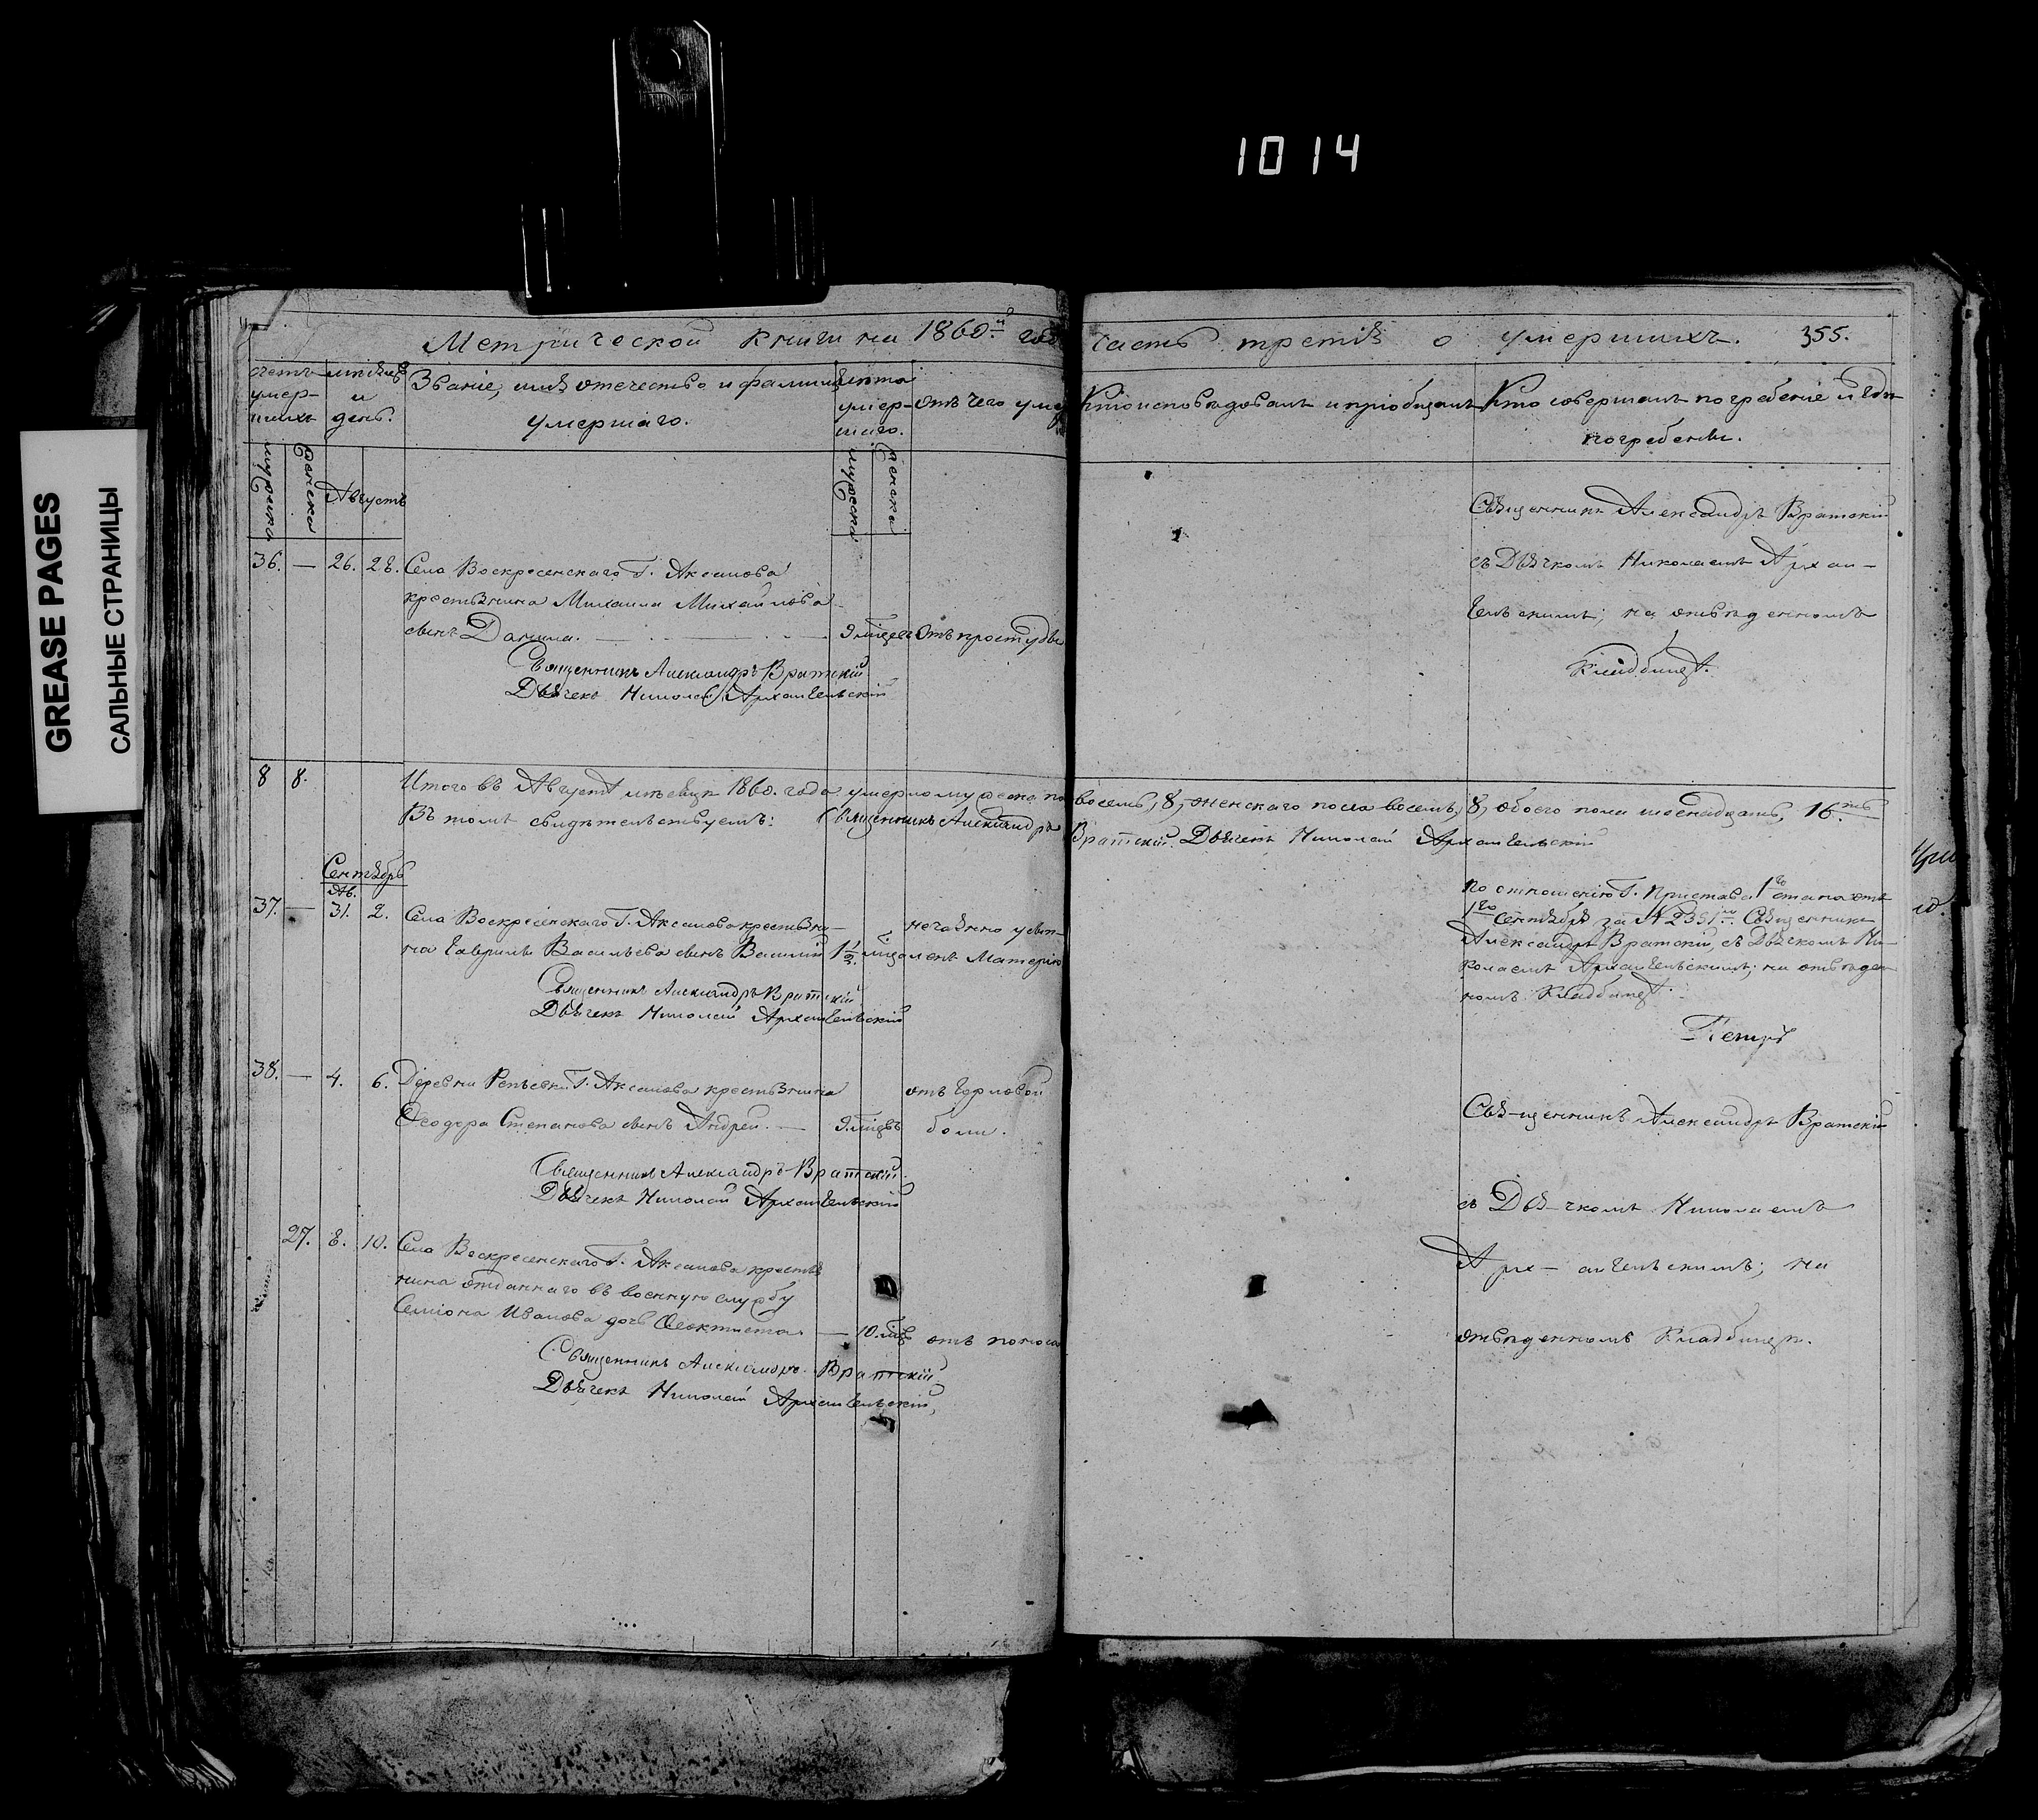 1014
GREASE PAGES
САЛЬНЫЕ СТРАНИЦЫ
Метрической книги на 1860й год часть третія о умершихъ. 355.
счетъ умер-шихъ
мѣсяцъ и день.
Званіе, имя отечество и фамилія умершаго.
лѣта умер-шаго.
отъ чего умер
Кто исповѣдовалъ и пріобщалъ
Кто совершалъ погребеніе и гдѣ погребены.
мужска
женска
Августъ
мужска
женска
36. — 26. 28. Села Воскресенскаго Г. Аксакова
крестьянина Михаила Михайлова
сынъ Данила. — 9 мѣсяц отъ простуды
Священникъ Александръ Вратскій
Дьячекъ Николай Архангельскій
Священникъ Александръ Вратскій
съ Дьячкомъ Николаемъ Архан-
гельскимъ; на отвѣденномъ
Кладбищѣ.
8 8. Итого въ Августѣ мѣсяцѣ 1860. года умерло мужска по восемь, 8, женскаго пола восемь, 8, обоего пола шеснадцать, 16ть
Въ томъ свидѣтельствуемъ: Священникъ Александръ Вратскій. Дьячекъ Николай Архангельскій
Сентябрь
Ав.
37. — 31. 2. Села Воскресенскаго Г. Аксакова крестьяни-
нечаянно усып-
на Гаврила Васильева сынъ Василій 1 1/2 мѣся ленъ Матерію
Священникъ Александръ Вратскій
Дьячекъ Николай Архангельскій
По отношенію Г. Пристава 1го стана отъ
1го Сентября за № 2351м Священникъ
Александръ Вратскій съ Дьячкомъ Ни-
колаемъ Архангельскимъ; на отвѣден
номъ Кладбищѣ.
Петръ
38. — 4. 6. Деревни Репьевки Г. Аксакова крестьянина
отъ горловой
Ѳеодора Степанова сынъ Андрей. — 9. мѣсцъ боли.
Священникъ Александръ Вратскій
Дьячекъ Николай Архангельскій
Священникъ Александръ Вратскій
съ Дьячкомъ Николаемъ
Арх-ангельскимъ; на
отвѣденномъ Кладбищѣ.
27. 8. 10. Села Воскресенскаго Г. Аксакова крестья
нина отданнаго въ военную службу
Семіона Иванова дочь Ѳеоктиста — 10. мѣс отъ поноса
Священникъ Александръ Вратскій
Дьячекъ Николай Архангельскій,